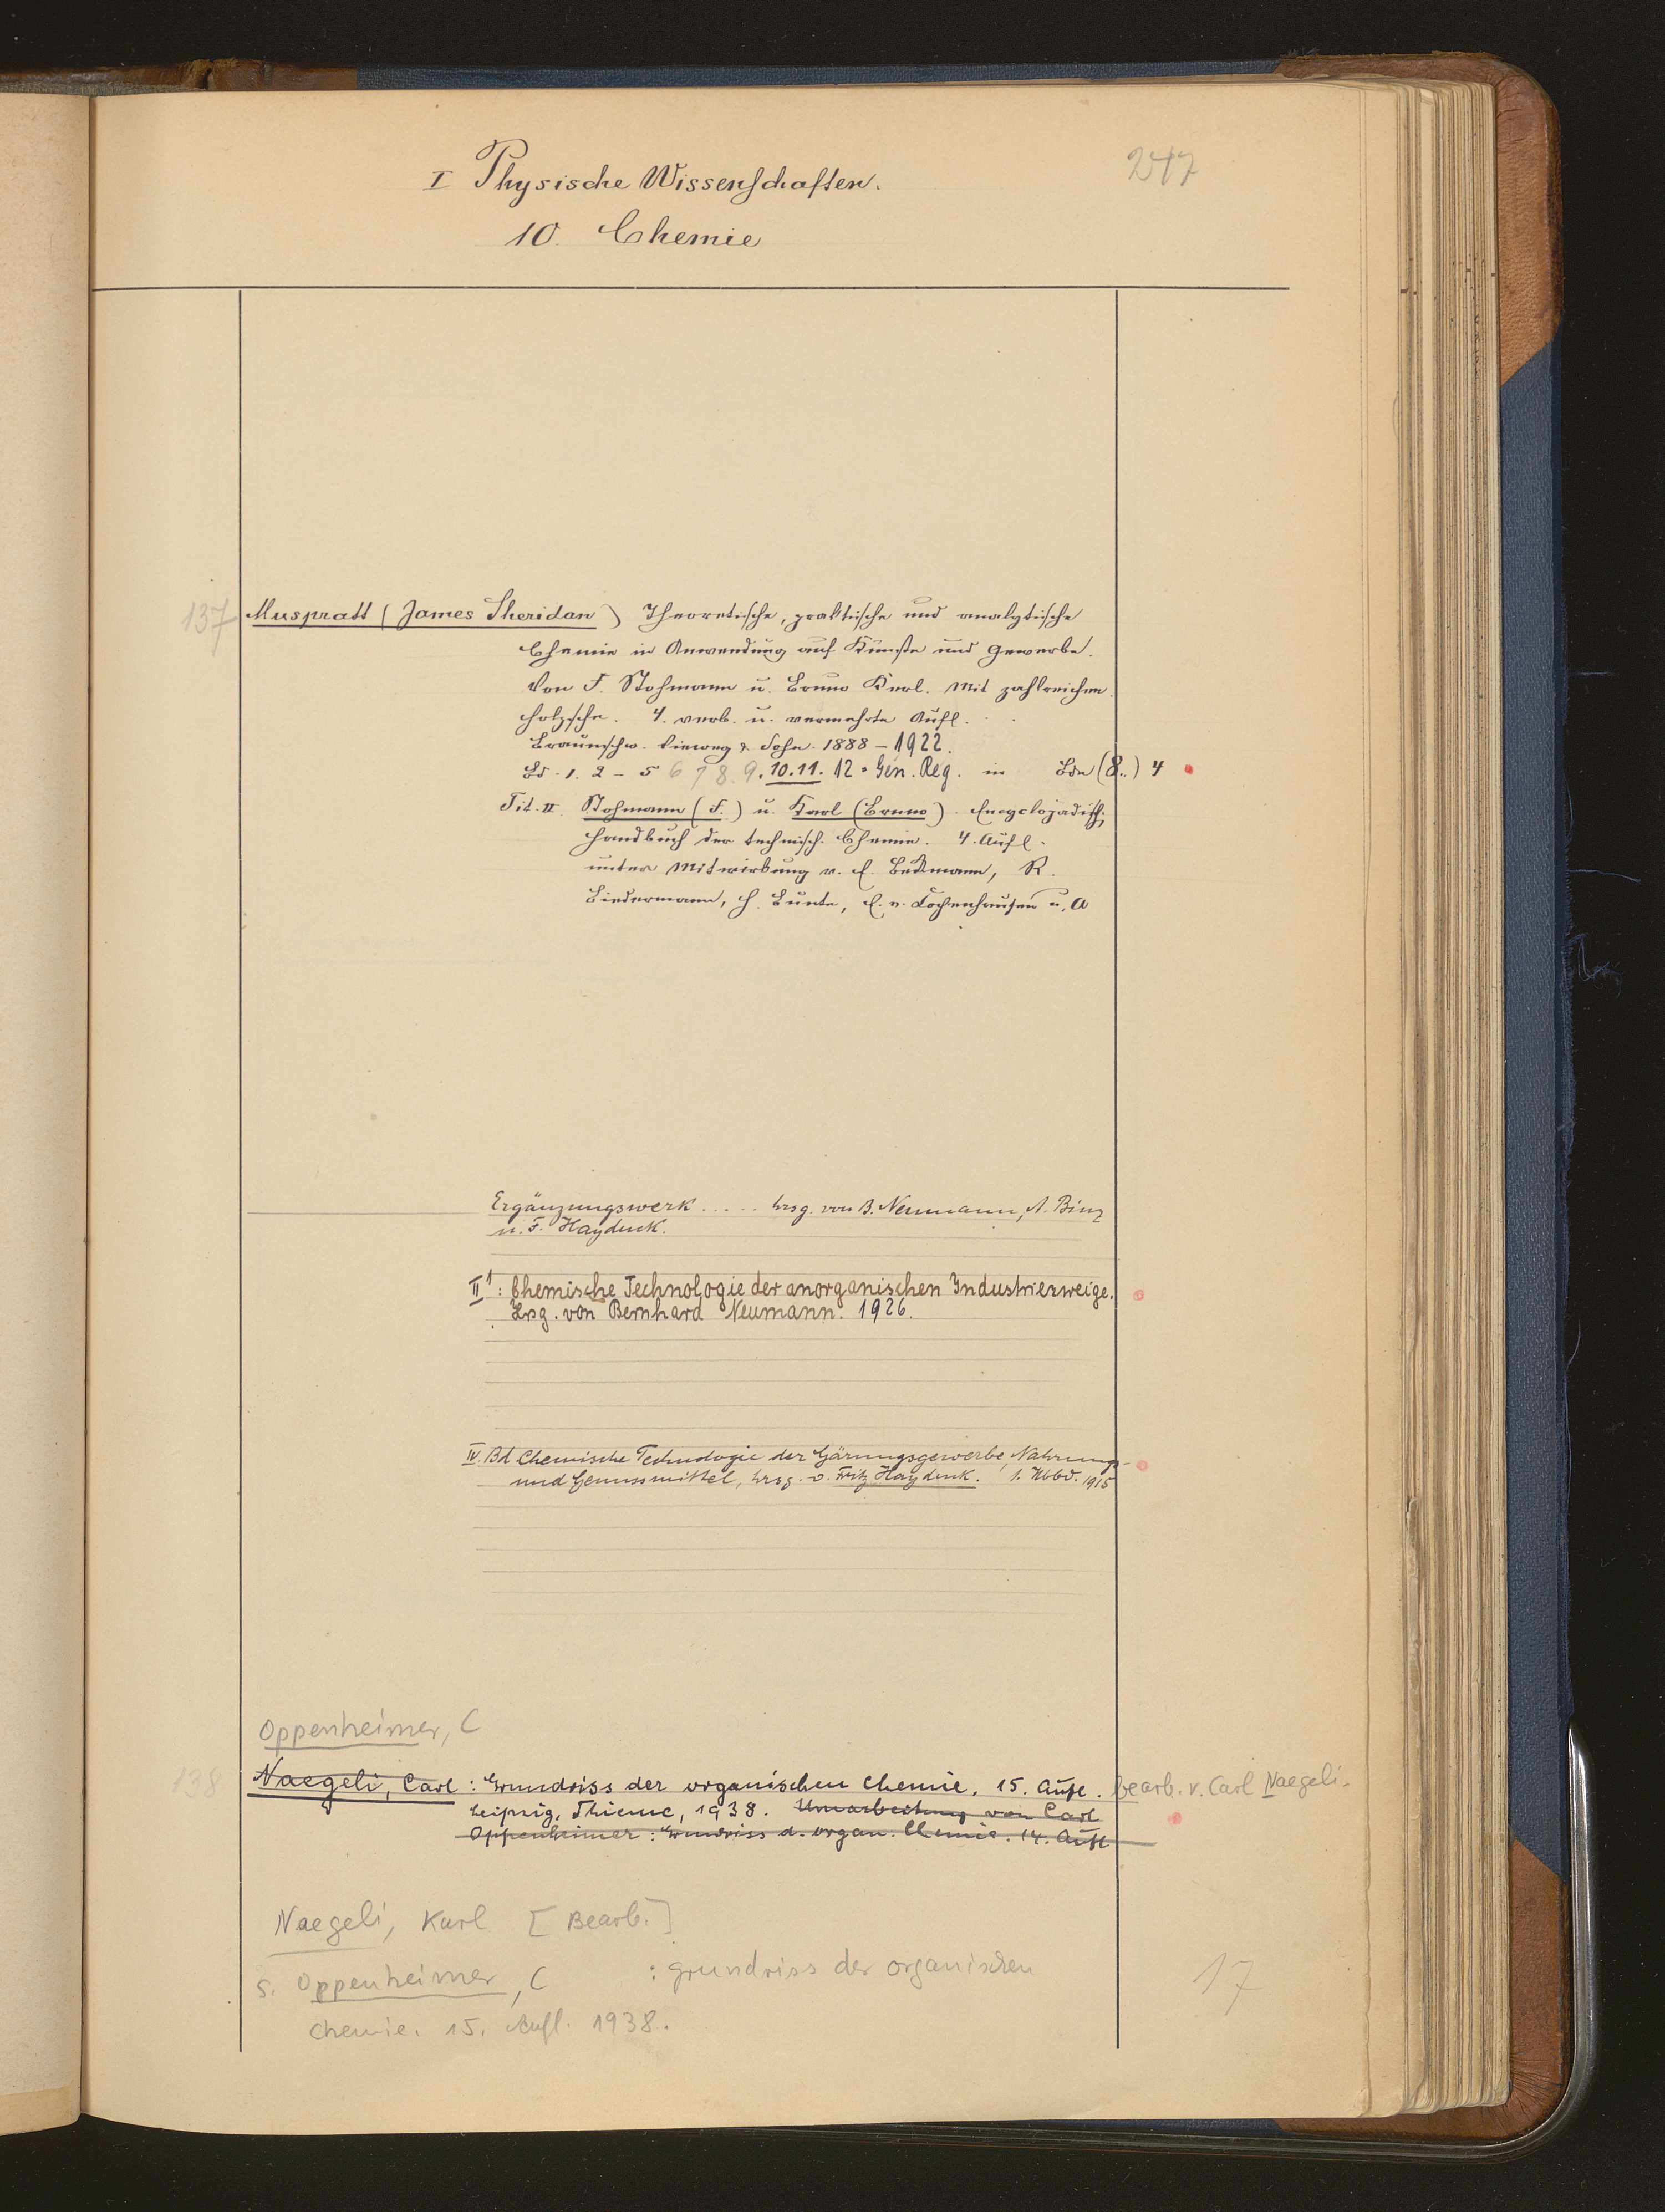 247
I Physische Wissenschaften.
10. Chemie
137 Muspratt (James Sheridan) Theoretische, praktische und analytische
Chemie in Anwendung auf Künste und Gewerbe.
Von F. Stohmann u. Bruno Kerl. Mit zahlreichen
Holzschn. 4. verb. u. vermehrte Aufl.
Braunschw. Vieweg & Sohn. 1888 – 1922.
Bd. 1. 2 – 5 6 7 8. 9. 10. 11. 12 = Gen. Reg. in Bdn (8..) 4
Tit. II. Stohmann (F.) u. Kerl (Bruno) Encyclopädisch.
Handbuch der technisch. Chemie. 4. Aufl.
unter Mitwirkung v. E. Beckmann, R.
Biedermann, H. Bunte, E. v. Cochenhausen u. A
Ergänzungswerk . . . . . hrsg. von B. Neumann, A. Binz
u. F. Hayduck.
II¹: Chemische Technologie der anorganischen Industriezweige.
Hrsg. von Bernhard Neumann. 1926.
IV. Bd Chemische Technologie der Gärungsgewerbe, Nahrungs-
und Genussmittel, hrsg. v. Fritz Hayduck. 1. Hbbd. 1915
Oppenheimer, C
138 Naegeli, Carl : Grundriss der organischen Chemie. 15. Aufl. bearb. v. Carl Naegeli.
Leipzig, Thieme, 1938. Umarbeitung von Carl
Oppenheimer: Grundriss d. organ. Chemie. 14. Aufl
Naegeli, Karl [Bearb.]
s. Oppenheimer, C : Grundriss der organischen
Chemie. 15. Aufl. 1938.
17